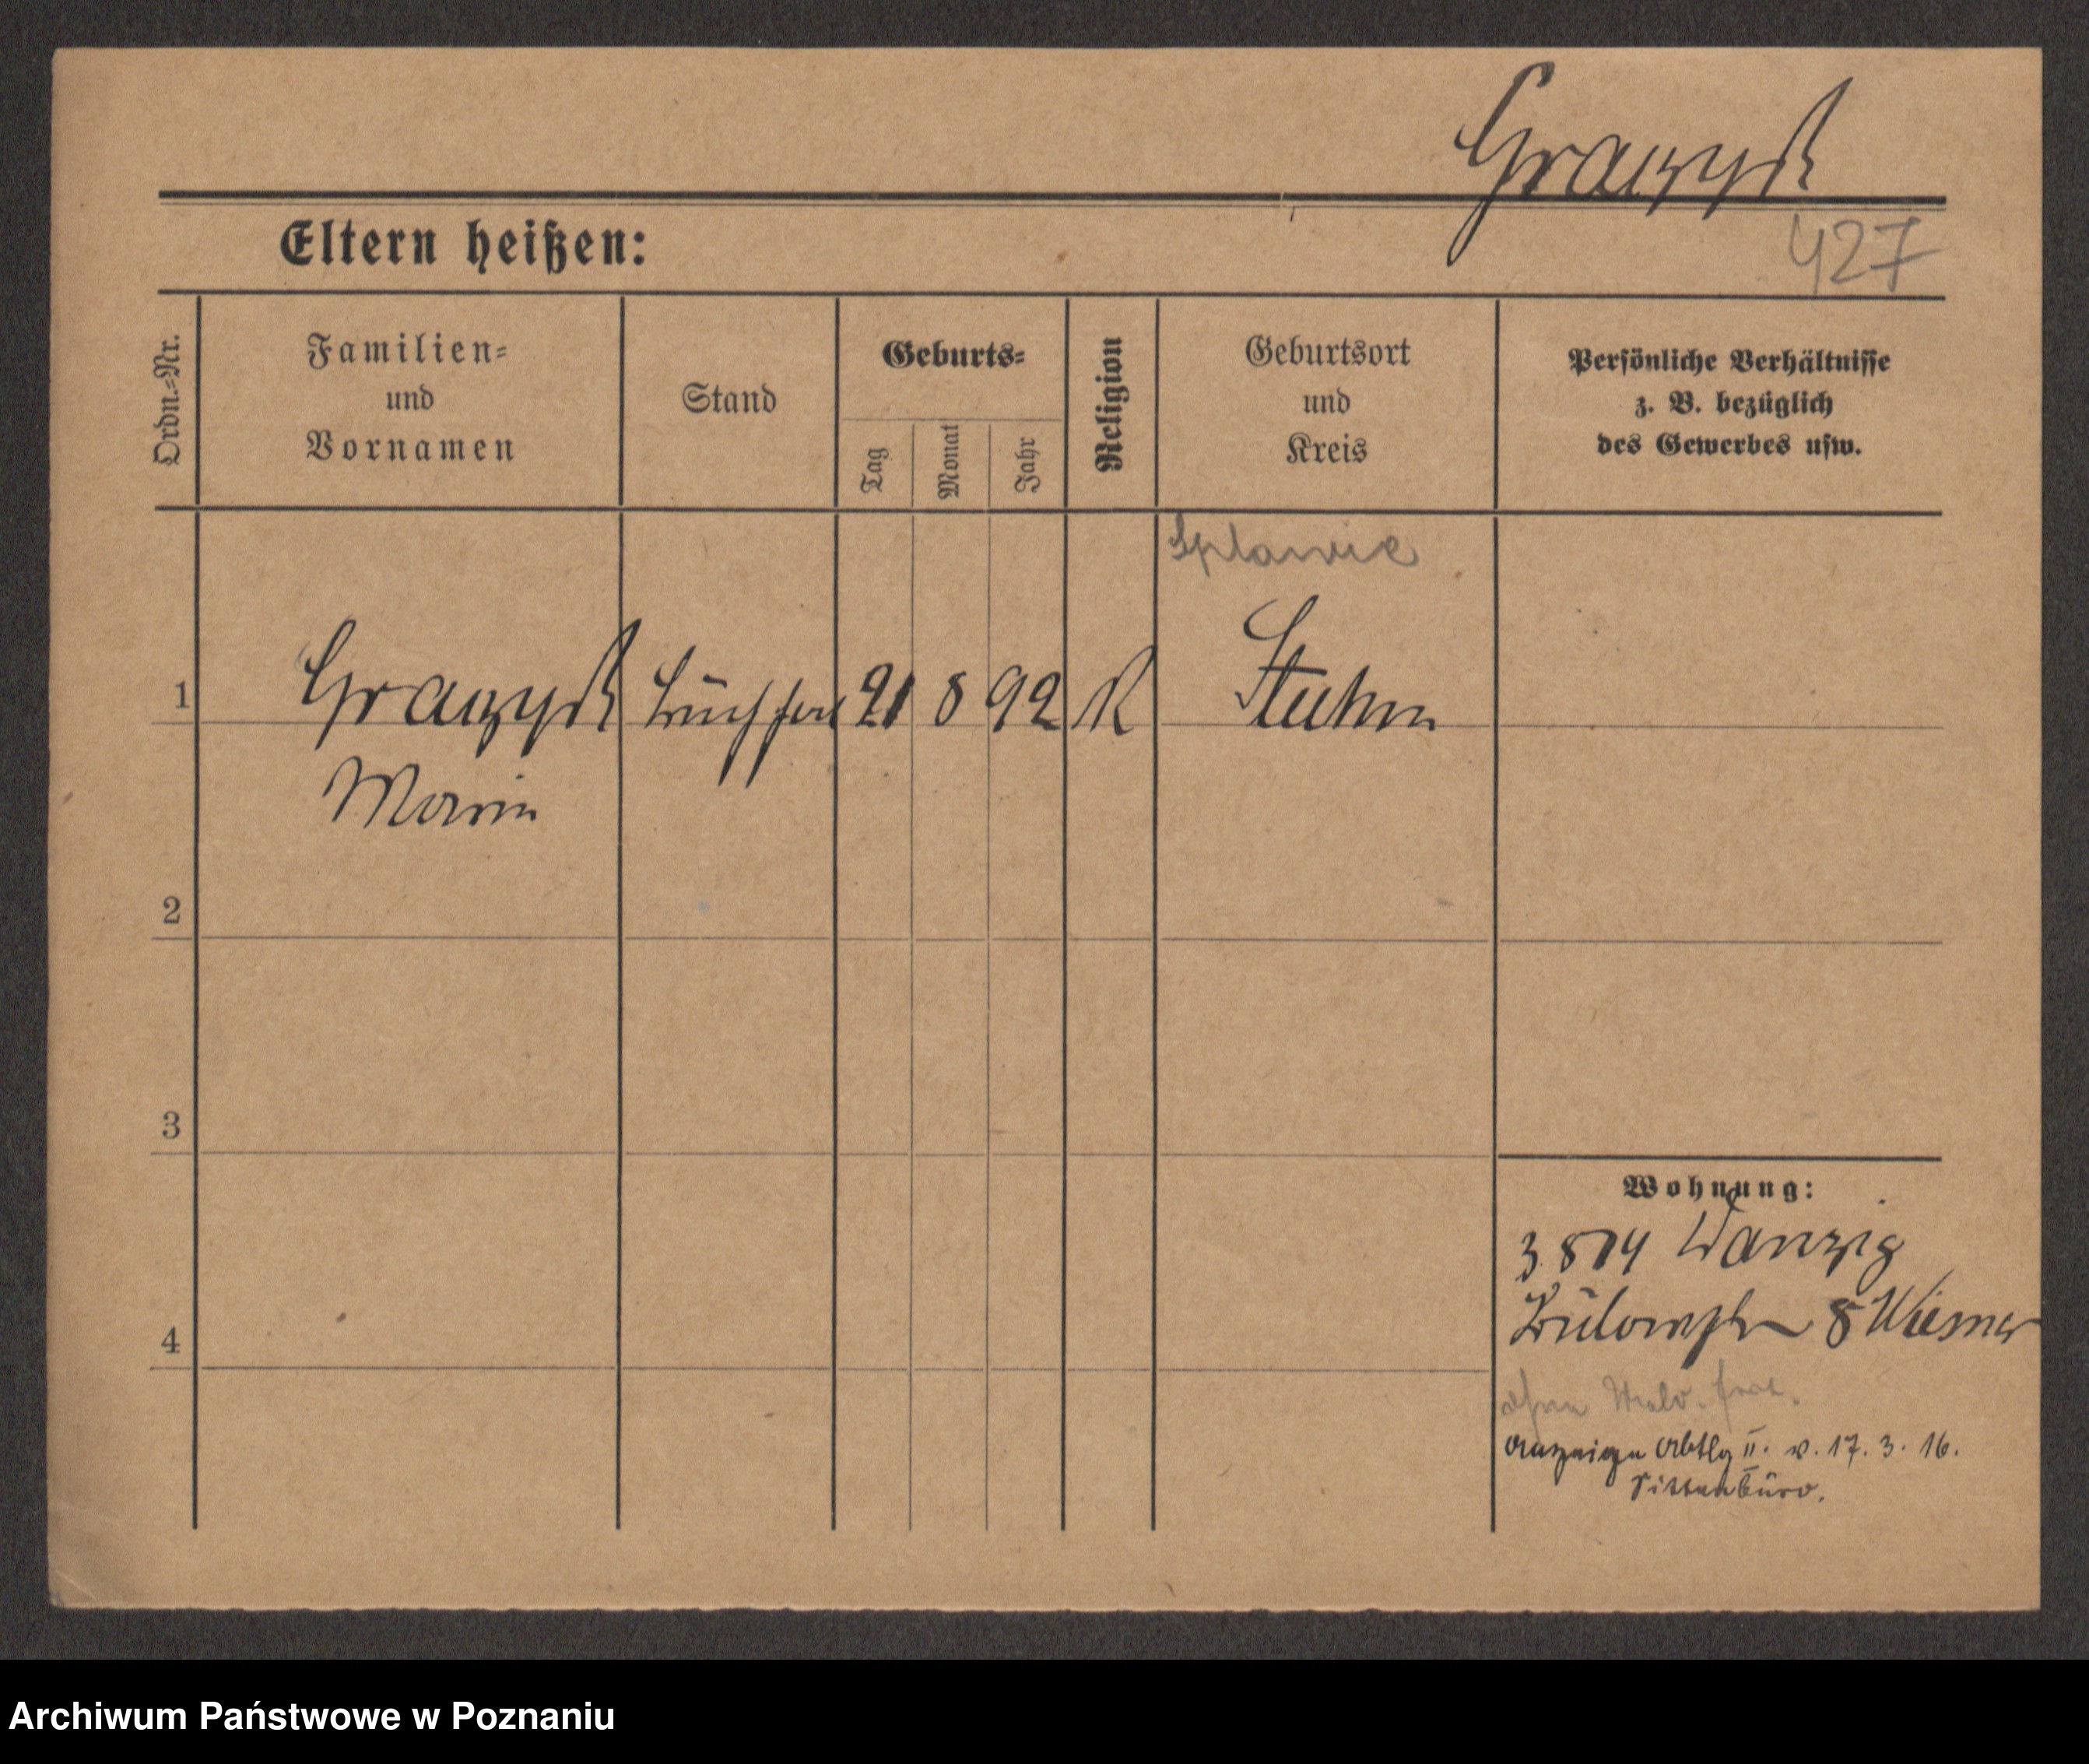 Graczyk
Eltern heißen:
427
Ordn.-Nr.
Familien-
und
Vornamen
Stand
Geburts-
Tag
Monat
Jahr
Religion
Geburtsort
und
Kreis
Persönliche Verhältnisse
z. B. bezüglich
des Gewerbes usw.
Splawie
1
Graczyk
21
8
92
K
Stuhm
Maria
2
3
4
Wohnung:
3. 8 14 Danzig
8 Wiesner
Anzeige Abtlg II. v. 17. 3. 16.
Sittenbüro.
Archiwum Państwowe w Poznaniu